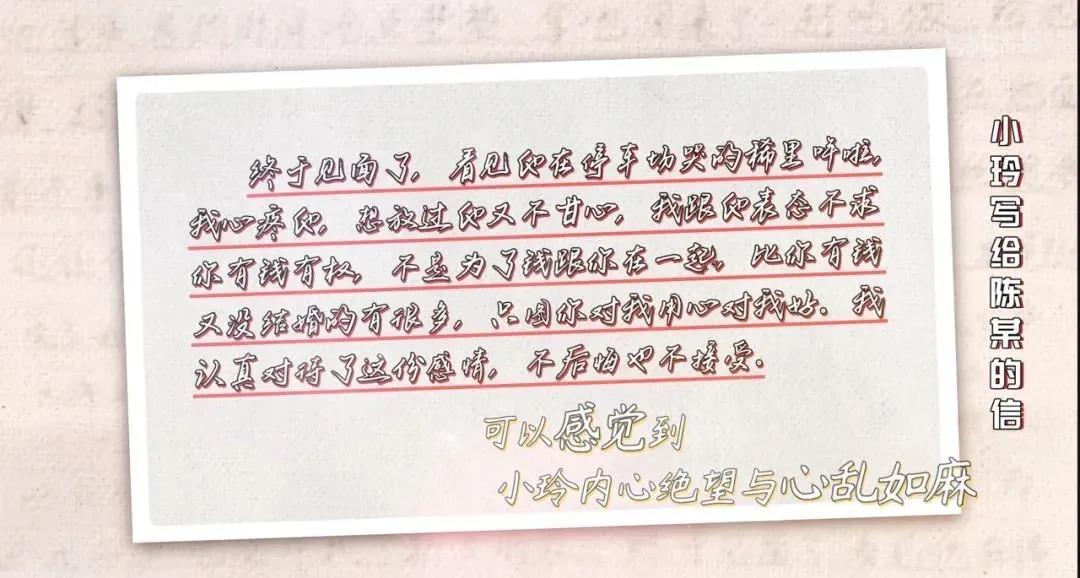 小玲写给陈某的信
终于见面了，看见你在停车场哭的稀里哗啦，
我心疼你，想放过你又不甘心，我跟你表态不求
你有钱有权，不是为了钱跟你在一起，比你有钱
又没结婚的有很多，只图你对我用心对我好。我
认真对待了这份感情，不后悔也不接受.
可以感觉到
小玲内心绝望与心乱如麻